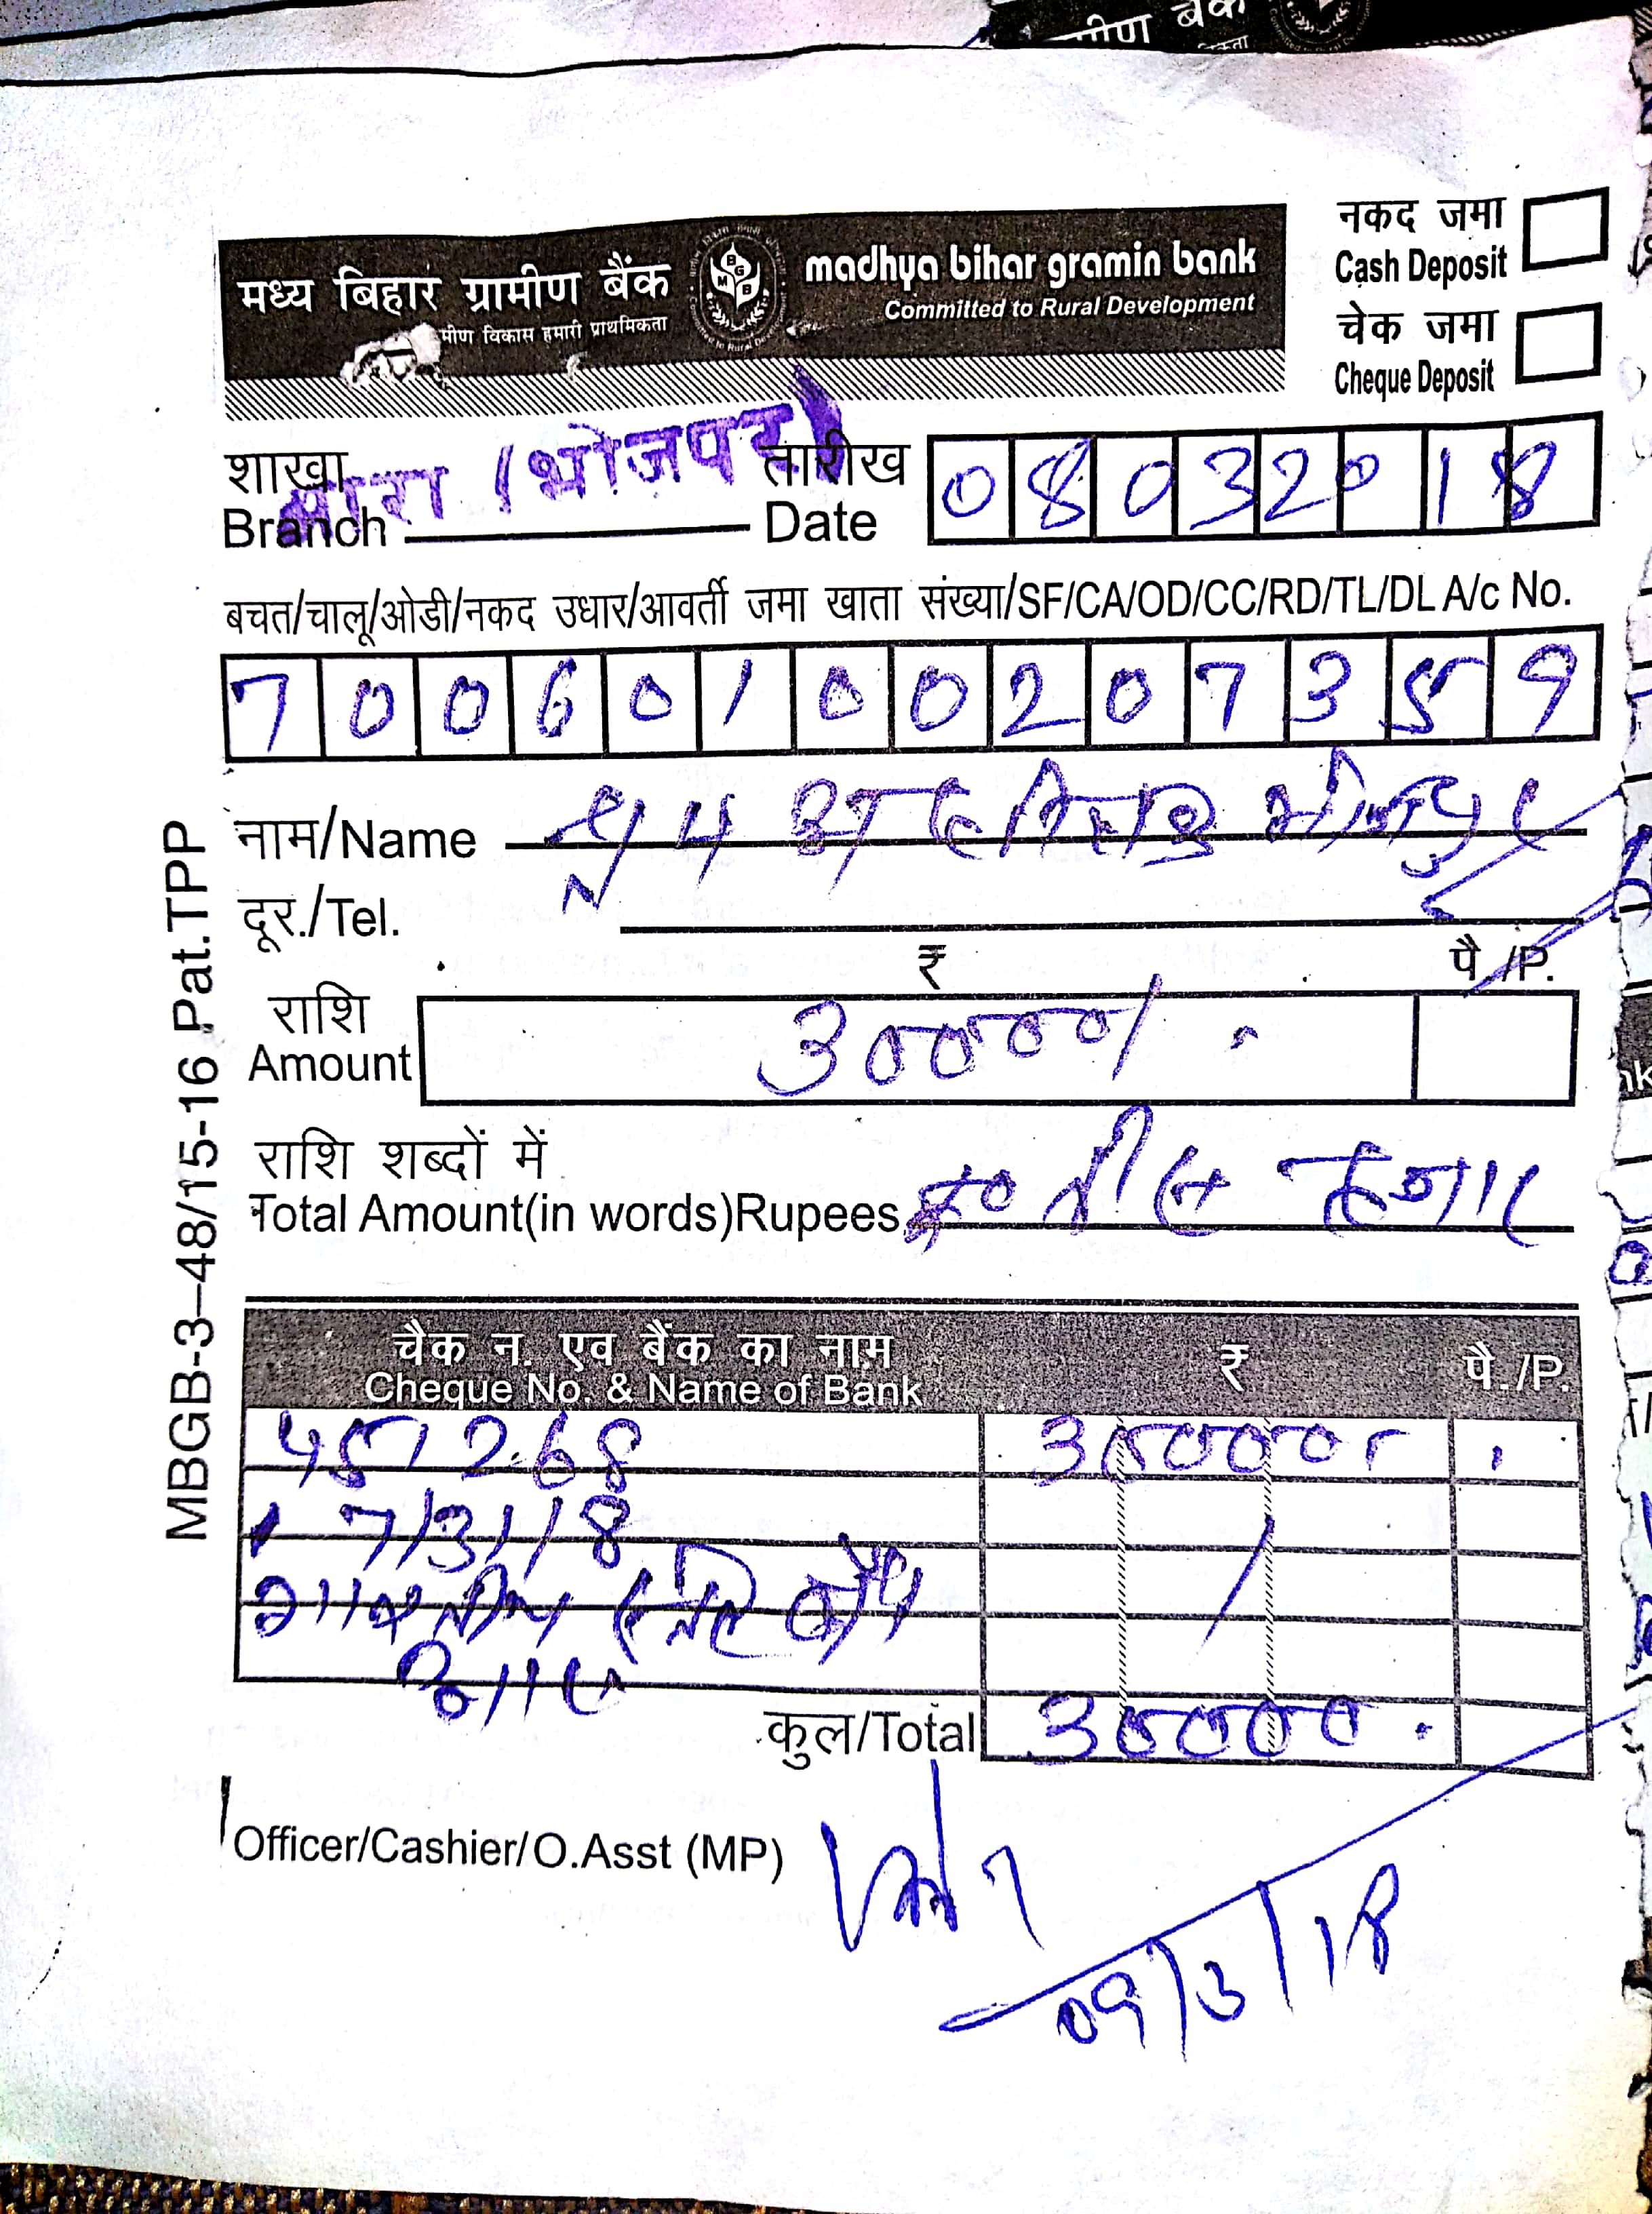 मीण बैंक
मध्य बिहार ग्रामीण बैंक
मीण विकास हमारी प्राथमिकता
madhya bihar gramin bank
Committed to Rural Development
नकद जमा
Cash Deposit
चेक जमा
Cheque Deposit
शाखा
Branch
तारीख
Date
08032018
बचत/चालू/ओडी/नकद उधार/आवर्ती जमा खाता संख्या/SF/CA/OD/CC/RD/TL/DL A/c No.
70060100207359
नाम/Name
दूर./Tel.
₹ पै./P.
राशि
Amount 30000/
राशि शब्दों में
Total Amount(in words)Rupees रू० तीस हजार
चैक न. एव बैंक का नाम ₹ पै./P.
Cheque No. & Name of Bank
451268 30000
7/3/18
भारतीय स्टेट बैंक
आरा
कुल/Total 30000
Officer/Cashier/O.Asst (MP)
09/3/18
MBGB-3-48/15-16 Pat.TPP